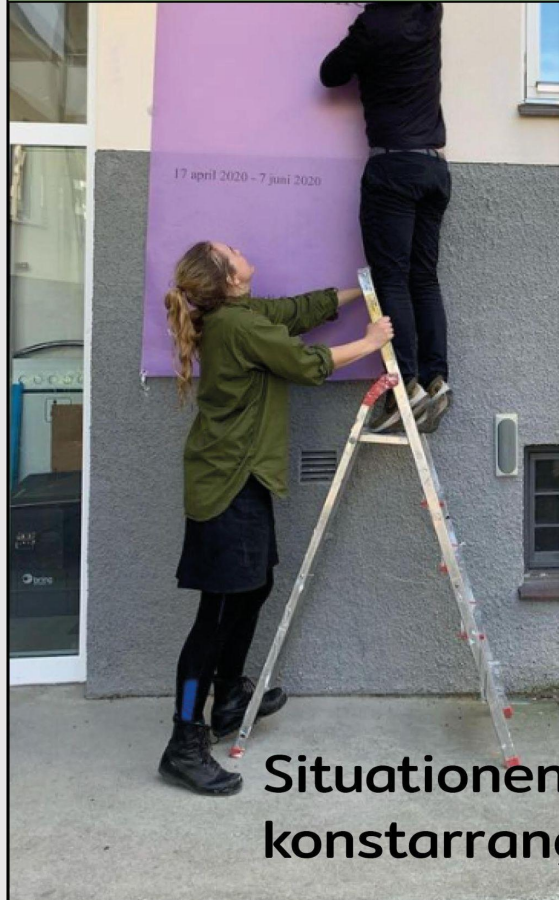 17 april 2020 - 7 juni 2020
bring
Situationen
konstarran